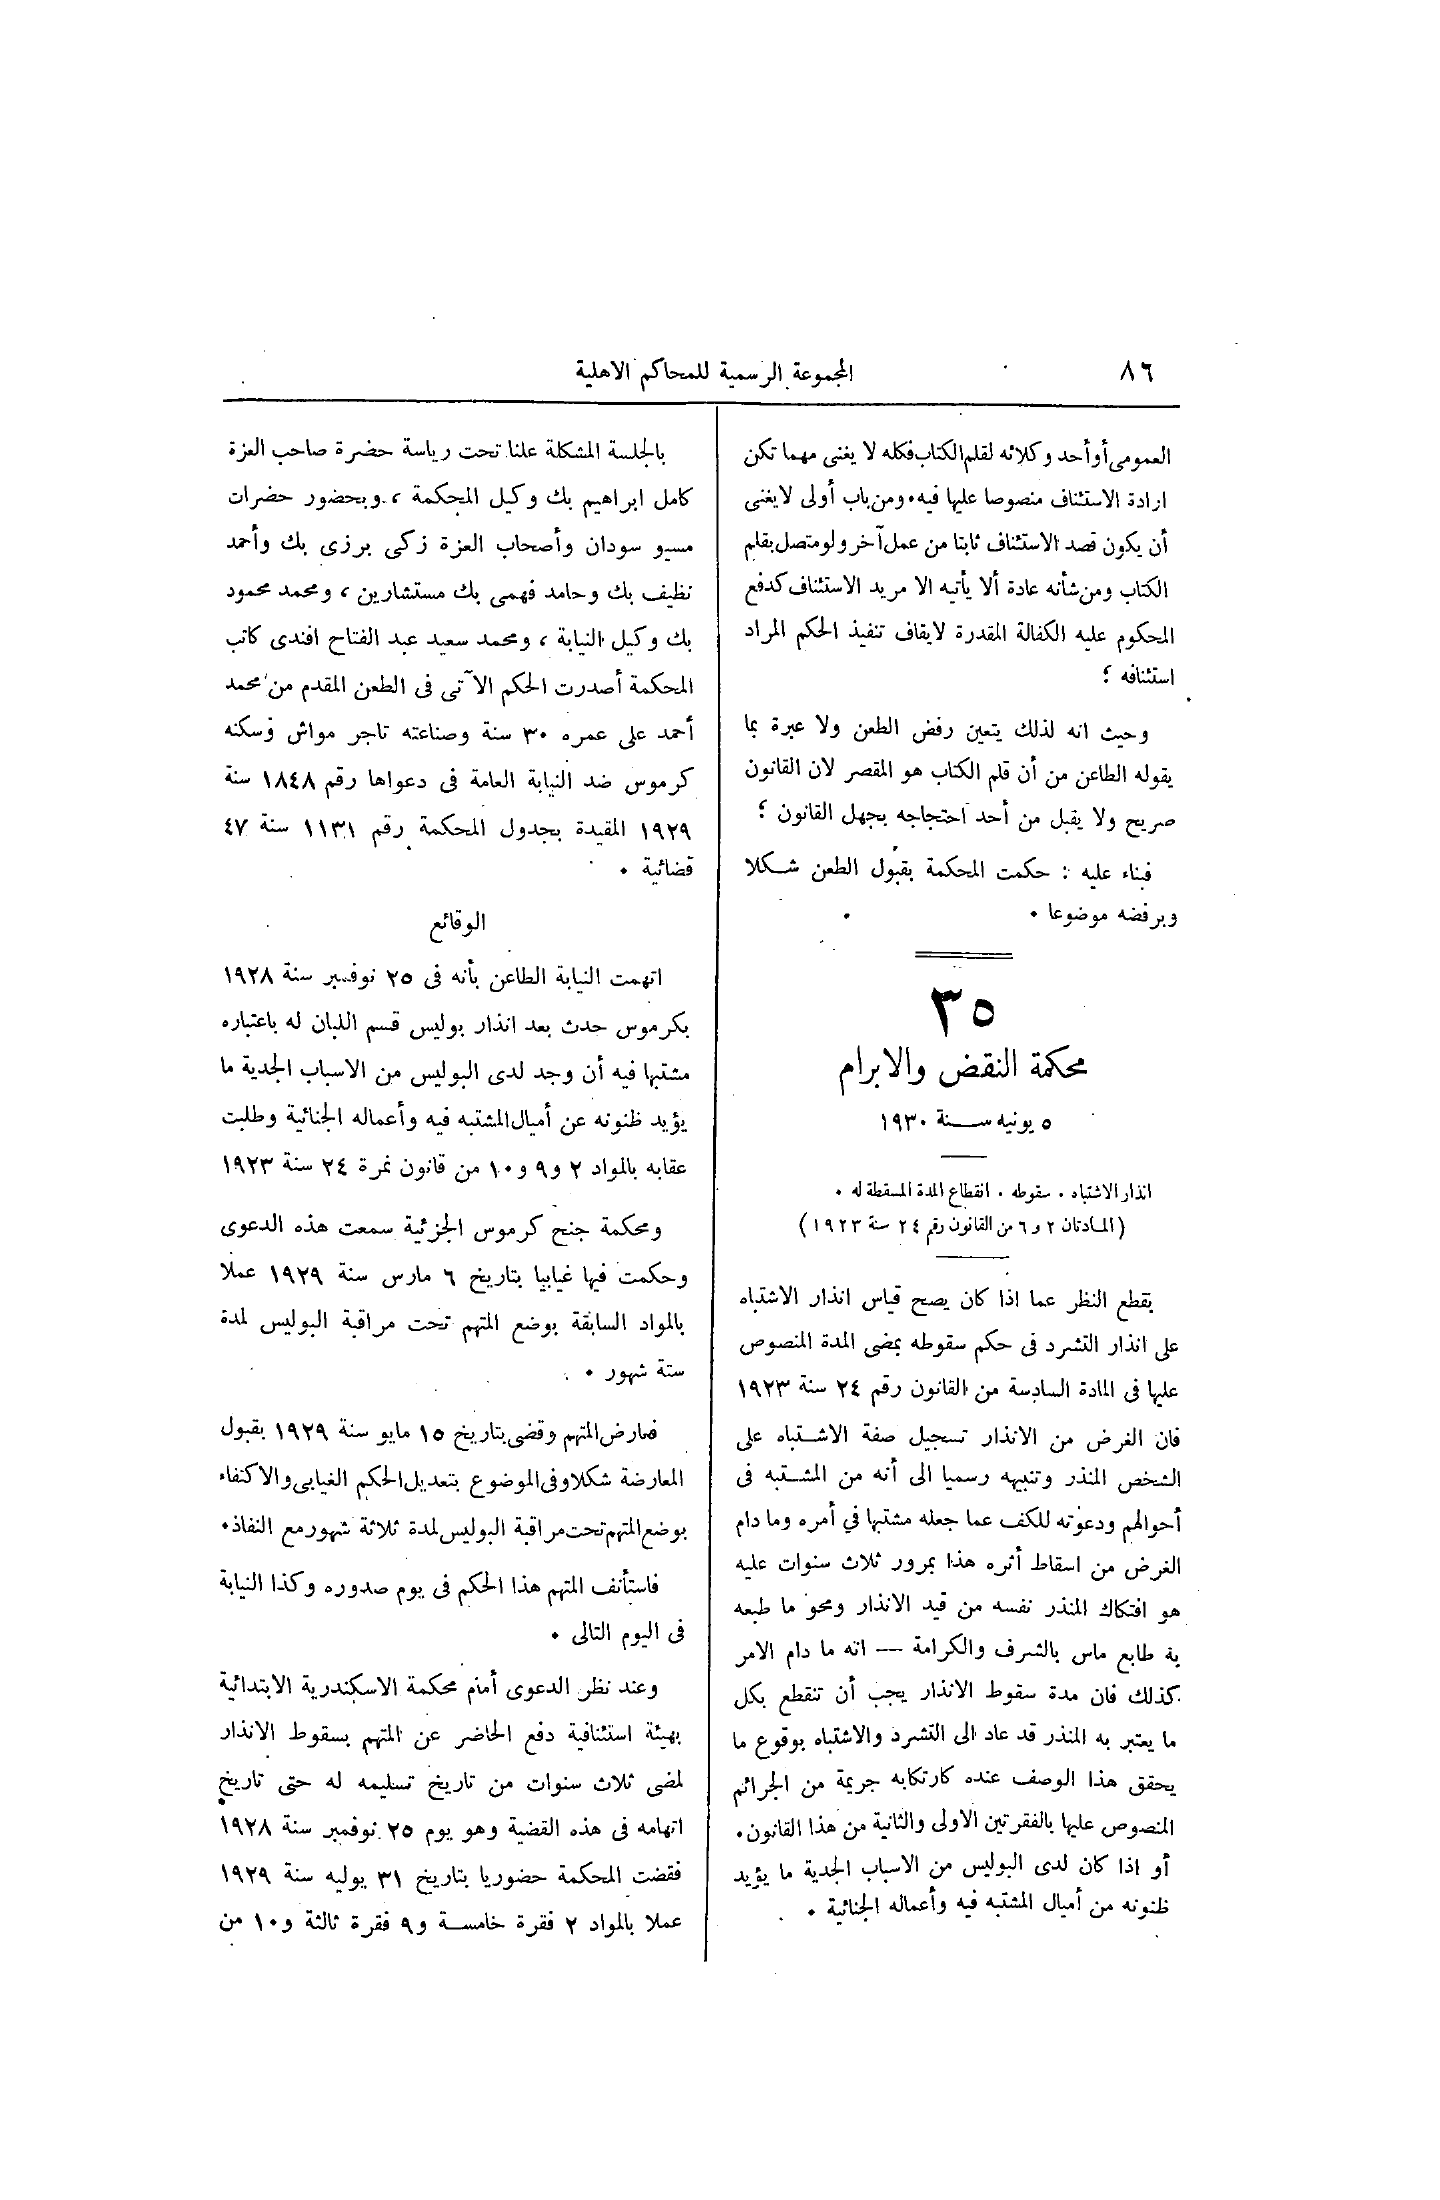 ٨٦
المجموعة الرسمية للمحاكم الاهلية
العمومى أو أحد وكلائه لقلم الكتاب فكله لا يغنى مهما تكن
ارادة الاستئناف منصوصا عليها فيه. ومن باب أولى لا يغنى
أن يكون قصد الاستئناف ثابتا من عمل آخر ولو متصل بقلم
الكتاب ومن شأنه عادة ألا يأتيه الا مريد الاستئناف كدفع
المحكوم عليه الكفالة المقدرة لايقاف تنفيذ الحكم المراد
استئنافه ؛
وحيث انه لذلك يتعين رفض الطعن ولا عبرة بما
يقوله الطاعن من أن قلم الكتاب هو المقصر لان القانون
صريح ولا يقبل من أحد احتجاجه بجهل القانون ؛
فبناء عليه : حكمت المحكمة بقبول الطعن شكلا
وبرفضه موضوعا .
٣٥
محكمة النقض والابرام
٥ يونيه سنة ١٩٣٠
انذار الاشتباه . سقوطه . انقطاع المدة المسقطة له .
( المادتان ٢ و ٦ من القانون رقم ٢٤ سنة ١٩٢٣ )
بقطع النظر عما اذا كان يصح قياس انذار الاشتباه
على انذار التشرد فى حكم سقوطه بمضى المدة المنصوص
عليها فى المادة السادسة من القانون رقم ٢٤ سنة ١٩٢٣
فان الغرض من الانذار تسجيل صفة الاشتباه على
الشخص المنذر وتنبيهه رسميا الى أنه من المشتبه فى
أحوالهم ودعوته للكف عما جعله مشتبها في أمره وما دام
الغرض من اسقاط أثره هذا بمرور ثلاث سنوات عليه
هو افتكاك المنذر نفسه من قيد الانذار ومحو ما طبعه
به طابع ماس بالشرف والكرامة — انه ما دام الامر
كذلك فان مدة سقوط الانذار يجب أن تنقطع بكل
ما يعتبر به المنذر قد عاد الى التشرد والاشتباه بوقوع ما
يحقق هذا الوصف عنده كارتكابه جريمة من الجرائم
المنصوص عليها بالفقرتين الاولى والثانية من هذا القانون.
أو اذا كان لدى البوليس من الاسباب الجدية ما يؤيد
ظنونه من أميال المشتبه فيه وأعماله الجنائية .
بالجلسة المشكلة علنا تحت رياسة حضرة صاحب العزة
كامل ابراهيم بك وكيل المحكمة ، وبحضور حضرات
مسيو سودان وأصحاب العزة زكى برزى بك وأحمد
نظيف بك وحامد فهمى بك مستشارين ، ومحمد محمود
بك وكيل النيابة ، ومحمد سعيد عبد الفتاح افندى كاتب
المحكمة أصدرت الحكم الآتى فى الطعن المقدم من محمد
أحمد على عمره ٣٠ سنة وصناعته تاجر مواش وسكنه
كرموس ضد النيابة العامة فى دعواها رقم ١٨٤٨ سنة
١٩٢٩ المقيدة بجدول المحكمة رقم ١١٣١ سنة ٤٧
قضائية .
الوقائع
اتهمت النيابة الطاعن بأنه فى ٢٥ نوفمبر سنة ١٩٢٨
بكرموس حدث بعد انذار بوليس قسم اللبان له باعتباره
مشتبها فيه أن وجد لدى البوليس من الاسباب الجدية ما
يؤيد ظنونه عن أميال المشتبه فيه وأعماله الجنائية وطلبت
عقابه بالمواد ٢ و ٩ و ١٠ من قانون نمرة ٢٤ سنة ١٩٢٣
ومحكمة جنح كرموس الجزئية سمعت هذه الدعوى
وحكمت فيها غيابيا بتاريخ ٦ مارس سنة ١٩٢٩ عملا
بالمواد السابقة بوضع المتهم تحت مراقبة البوليس لمدة
ستة شهور .
فعارض المتهم وقضى بتاريخ ١٥ مايو سنة ١٩٢٩ بقبول
المعارضة شكلا وفى الموضوع بتعديل الحكم الغيابى والاكتفاء
بوضع المتهم تحت مراقبة البوليس لمدة ثلاثة شهور مع النفاذ.
فاستأنف المتهم هذا الحكم فى يوم صدوره وكذا النيابة
فى اليوم التالى .
وعند نظر الدعوى أمام محكمة الاسكندرية الابتدائية
بهيئة استئنافية دفع الحاضر عن المتهم بسقوط الانذار
لمضى ثلاث سنوات من تاريخ تسليمه له حتى تاريخ
اتهامه فى هذه القضية وهو يوم ٢٥ نوفمبر سنة ١٩٢٨
فقضت المحكمة حضوريا بتاريخ ٣١ يوليه سنة ١٩٢٩
عملا بالمواد ٢ فقرة خامسة و ٩ فقرة ثالثة و ١٠ من